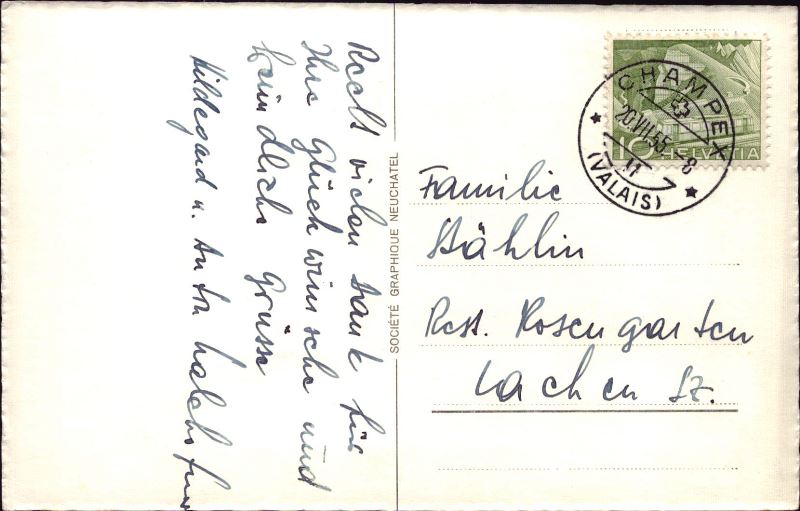 Recht vielen Dank für
Ihre Glückwünsche und
freundliche Grüsse
Hildegard u. Anton
SOCIÉTÉ GRAPHIQUE NEUCHATEL
CHAMPEX
20.VII.55 - 8
(VALAIS)
10 HELVETIA
Familie
Stählin
Rest. Rosengarten
Lachen Sz.